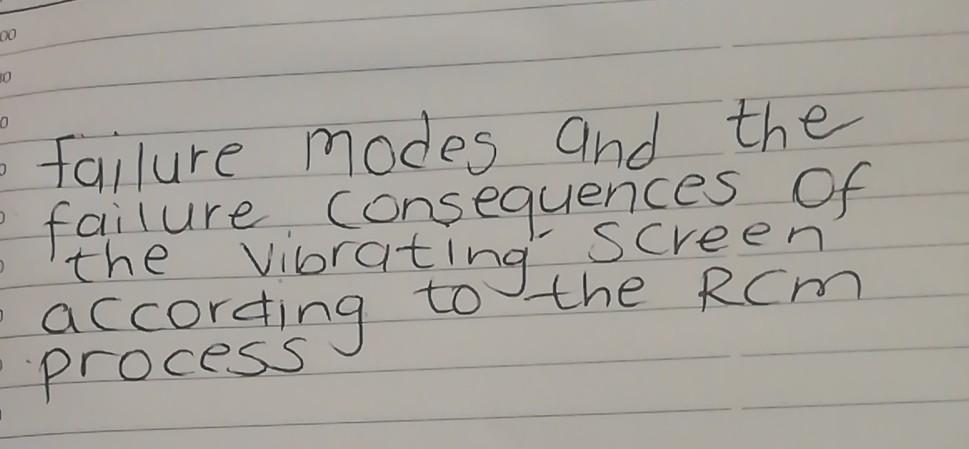 00
10
0
failure modes and the
failure consequences of
the vibrating screen
according to the RCM
process